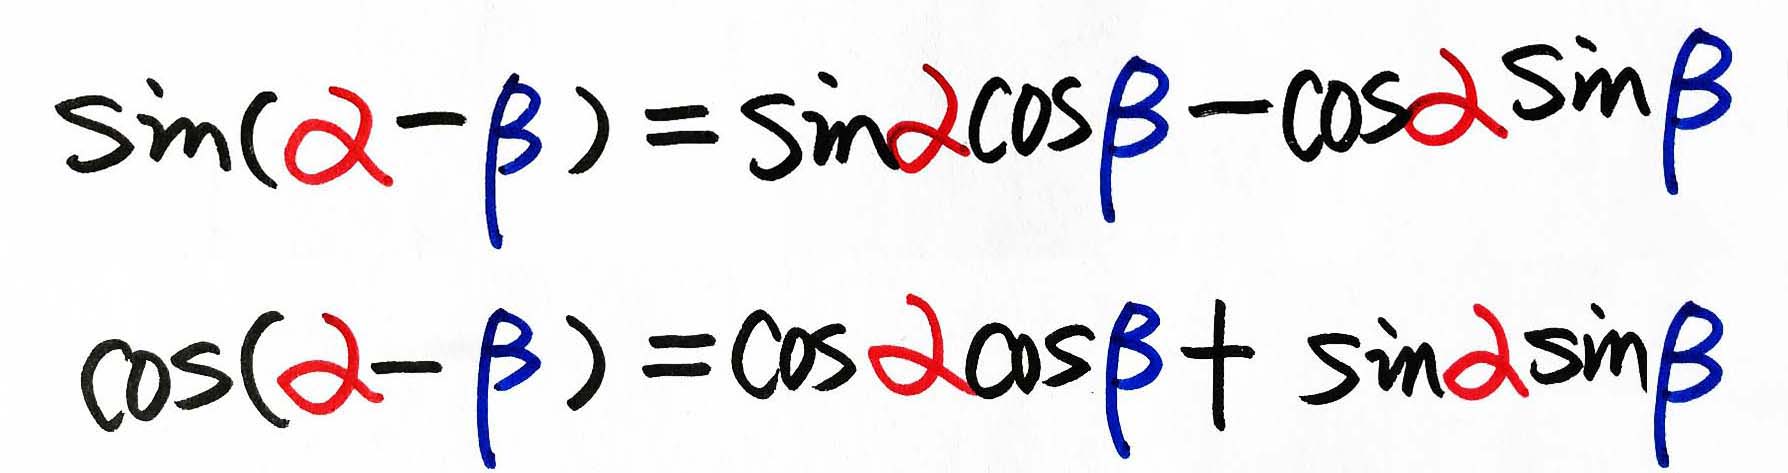 sin(α-β)=sinαcosβ-cosαsinβ
cos(α-β)=cosαcosβ+sinαsinβ